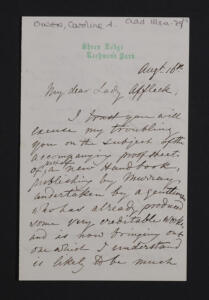 Owen, Caroline A.
Sheen Lodge
Richmond Park
Augt. 16th
My dear Lady Affleck,
I trust you will
excuse my troubling
you on the subject of the
accompanying proof sheet
of a new Handbook,
publishing by Murray,
undertaken by a gentleman
who has already produced
some very creditable works,
and is now bringing out
one which I understand
is likely to be much